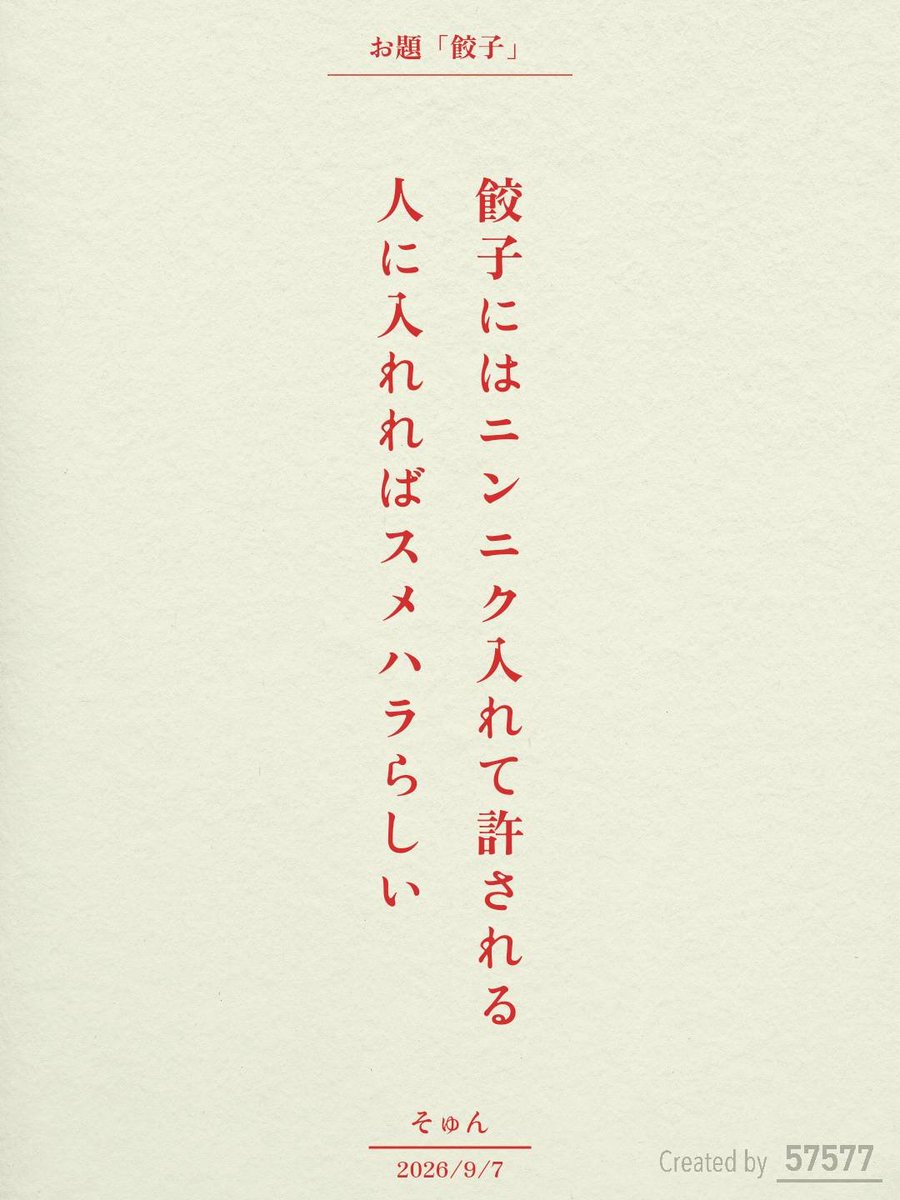 お題「餃子」
餃子にはニンニク入れて許される
人に入れればスメハラらしい
そゅん
2026/9/7
Created by 57577